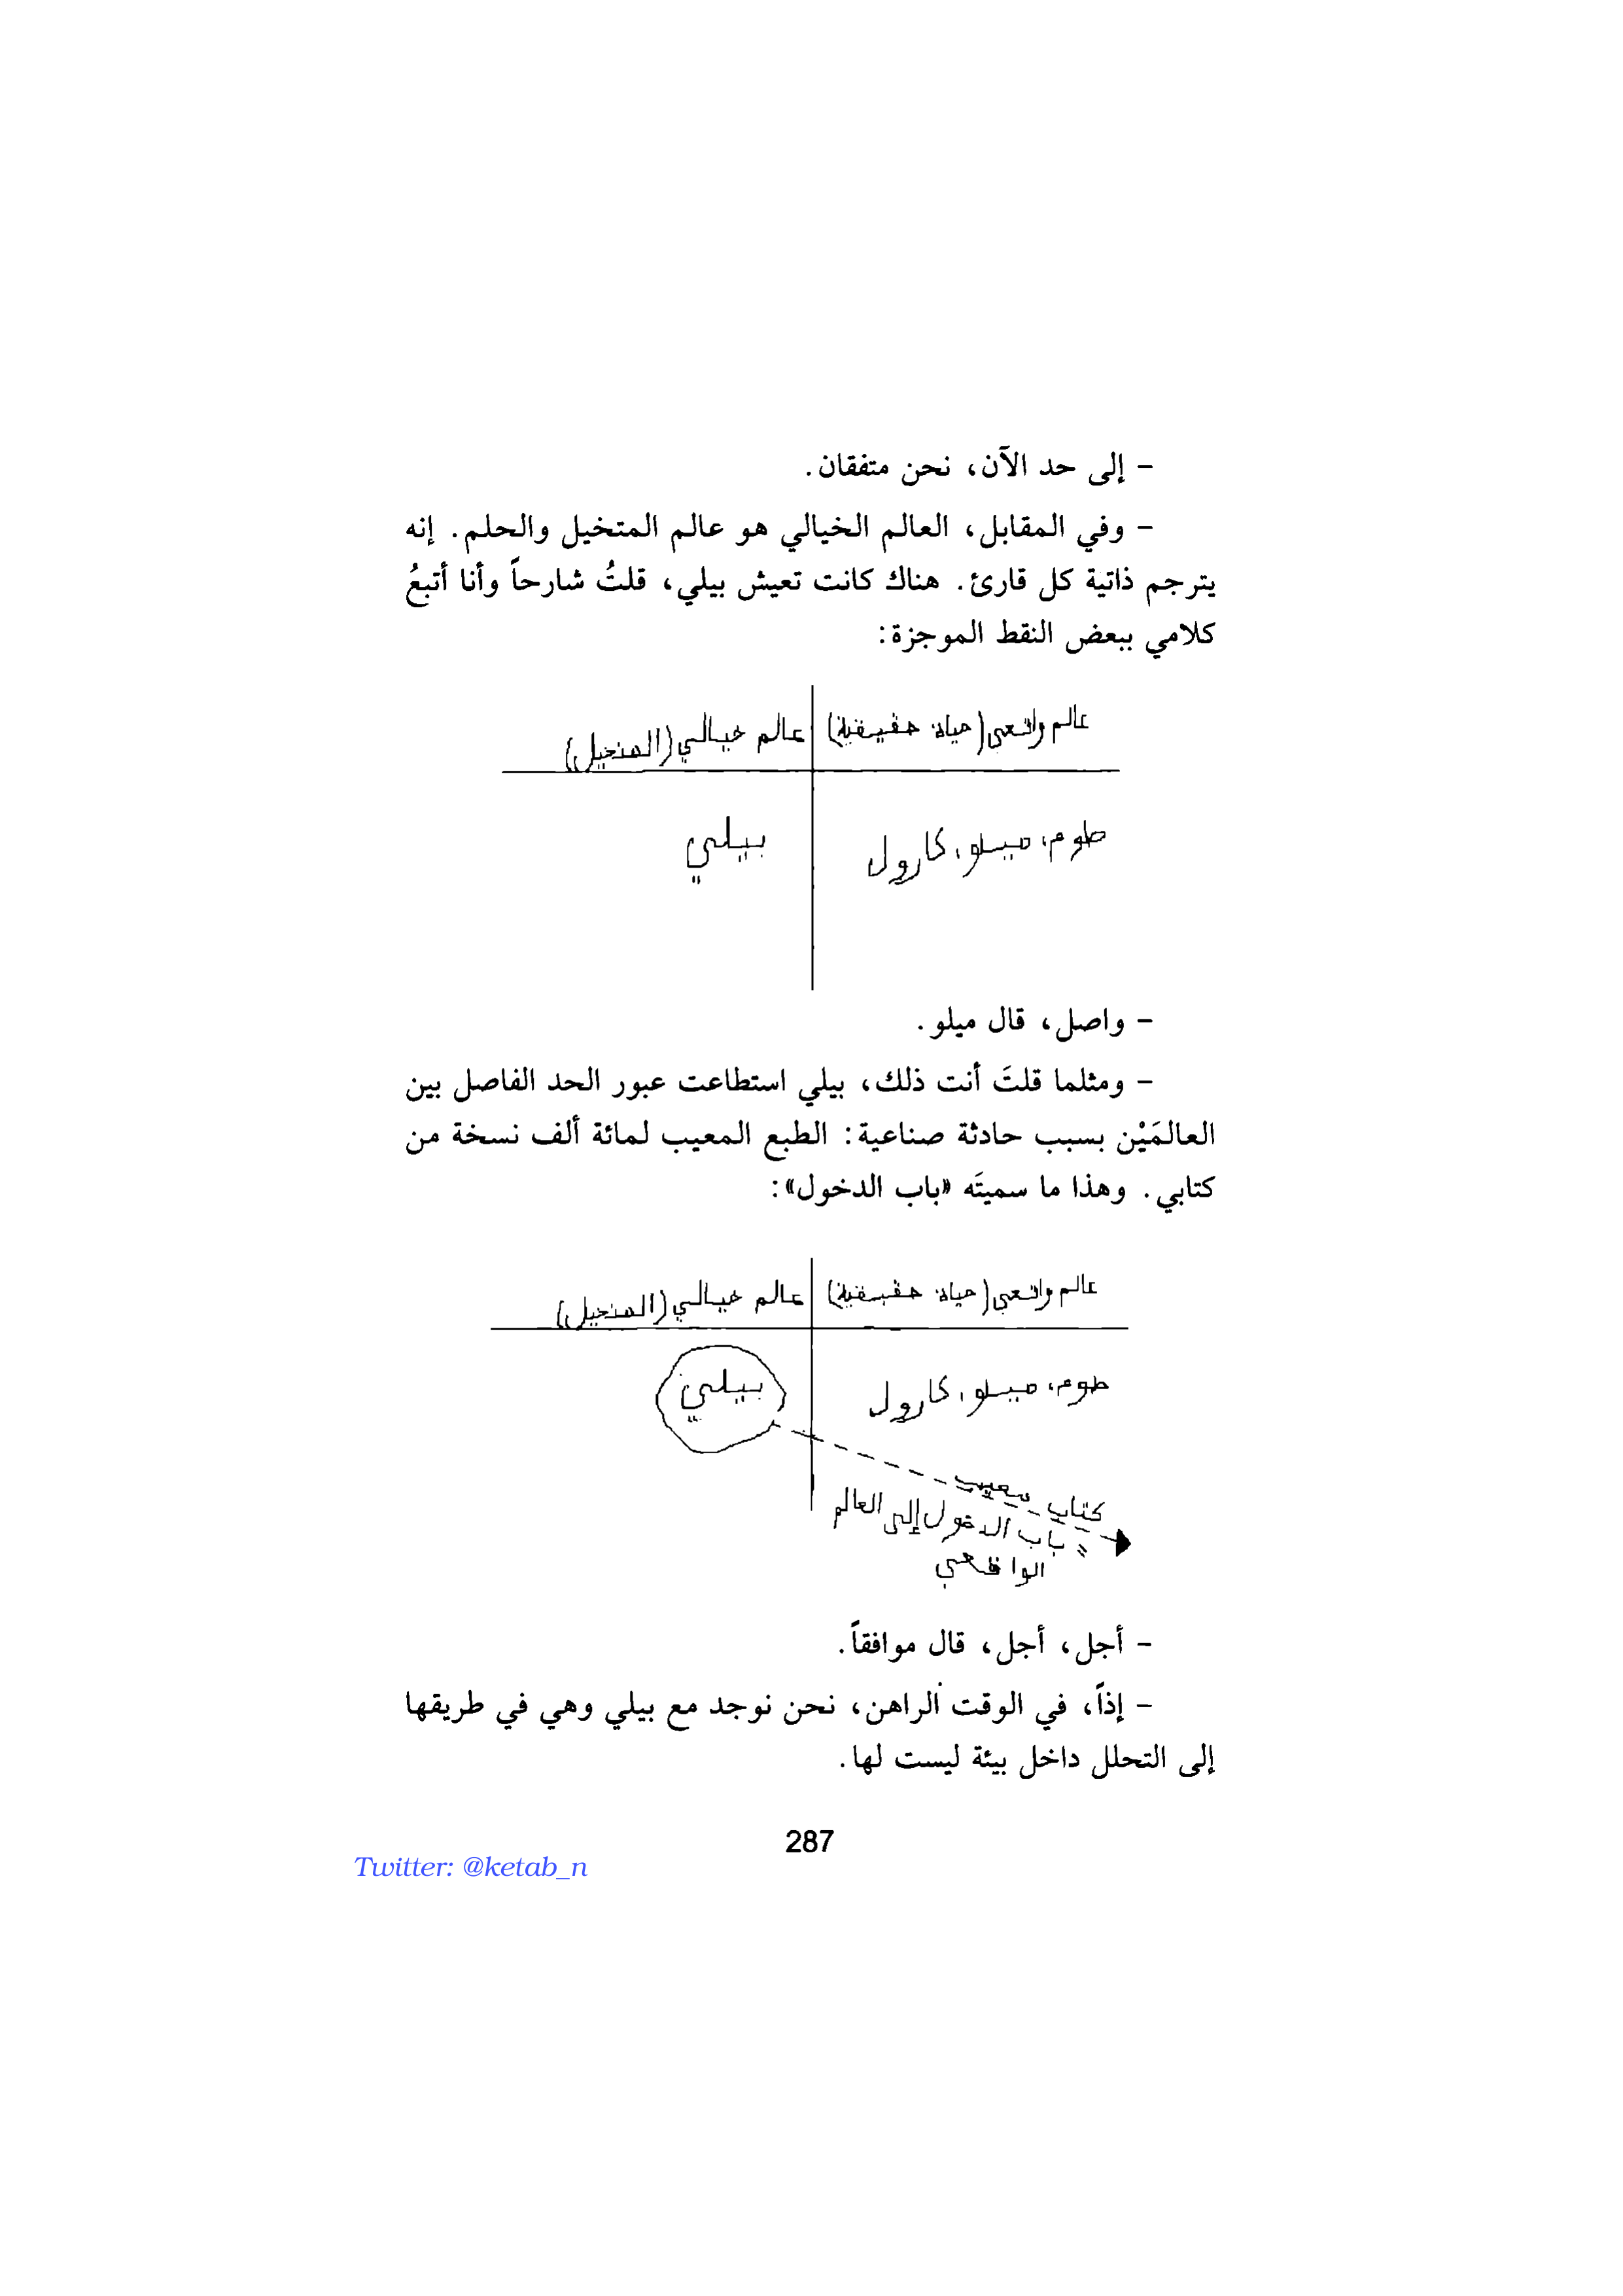 - إلى حد الآن، نحن متفقان.
- وفي المقابل، العالم الخيالي هو عالم المتخيل والحلم. إنه
يترجم ذاتية كل قارئ. هناك كانت تعيش بيلي، قلتُ شارحاً وأنا أتبعُ
كلامي ببعض النقط الموجزة:
عالم واقعي (حياة حقيقية) عالم خيالي (المتخيل)
طوم، ميلو، كارول بيلي
- واصل، قال ميلو.
- ومثلما قلتَ أنت ذلك، بيلي استطاعت عبور الحد الفاصل بين
العالمَيْن بسبب حادثة صناعية: الطبع المعيب لمائة ألف نسخة من
كتابي. وهذا ما سميتَه «باب الدخول»:
عالم واقعي (حياة حقيقية) عالم خيالي (المتخيل)
طوم، ميلو، كارول بيلي
كتاب معيب
= باب الدخول إلى العالم
الواقعي
- أجل، أجل، قال موافقاً.
- إذاً، في الوقت الراهن، نحن نوجد مع بيلي وهي في طريقها
إلى التحلل داخل بيئة ليست لها.
287
Twitter: @ketab_n